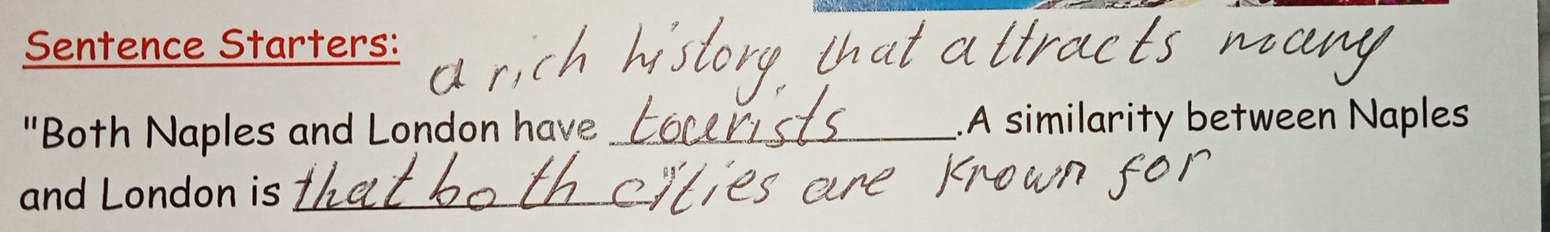 Sentence Starters:
a rich history that attracts many
"Both Naples and London have tourists .A similarity between Naples
and London is that both cities are known for